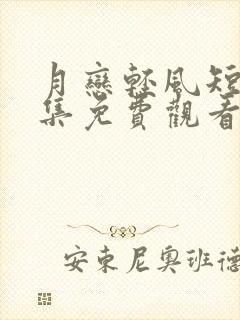 月戀輕風短
集免費觀看
安東尼奧班德